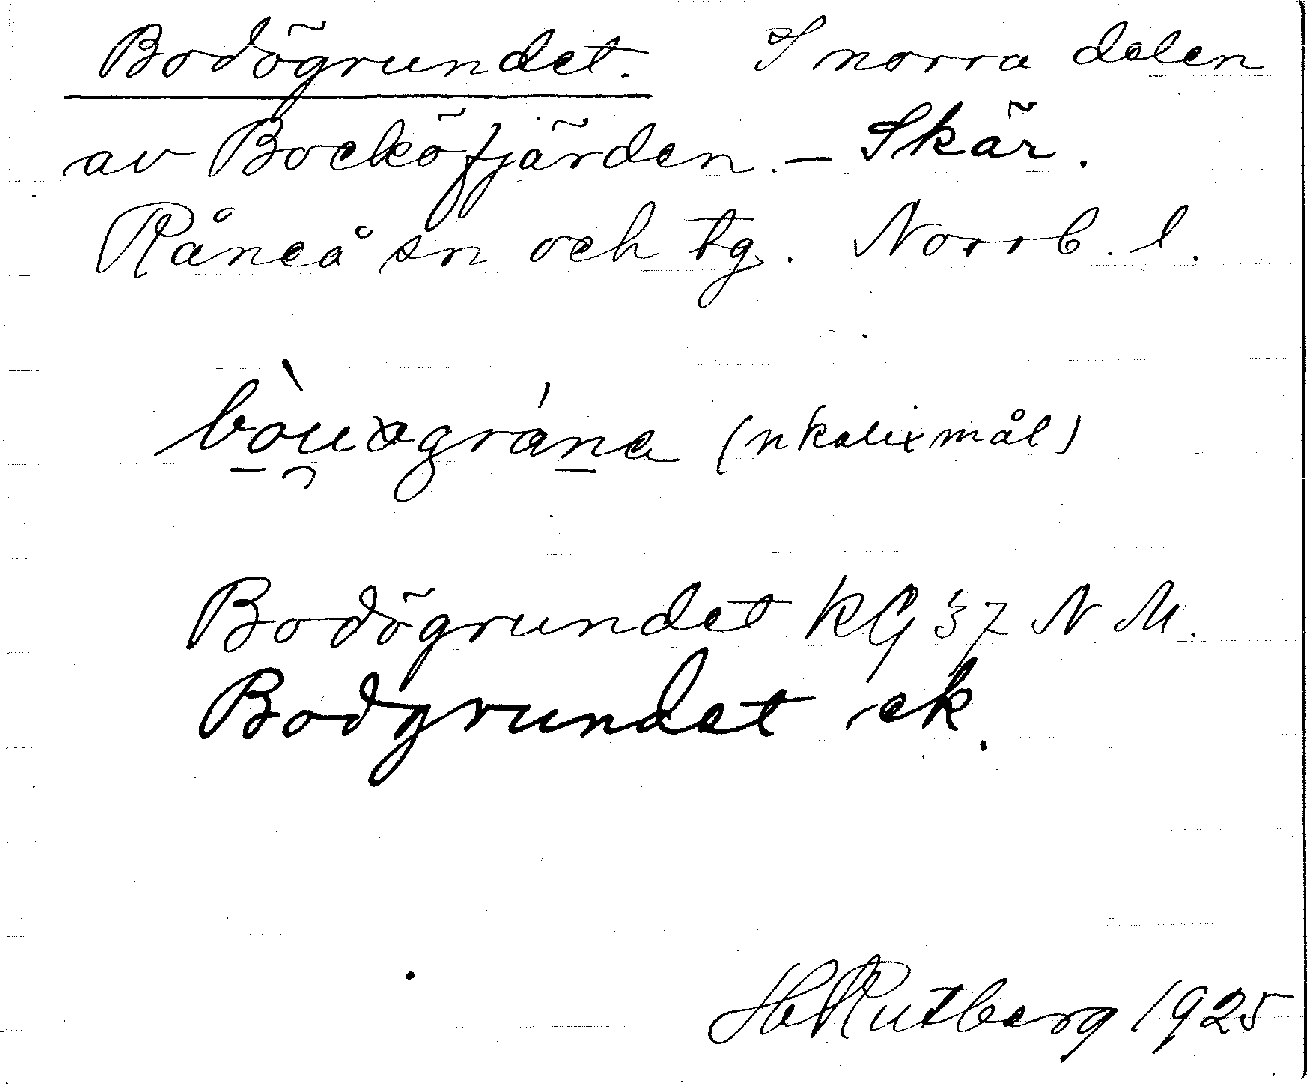 Bodögrundet. I norra delen
av Bocköfjärden. – Skär.
Råneå sn och tg. Norrb. l.
(nkalixmål)
Bodögrundet KG 37 N M.
Bodgrundet ek.
H Rutberg 1925